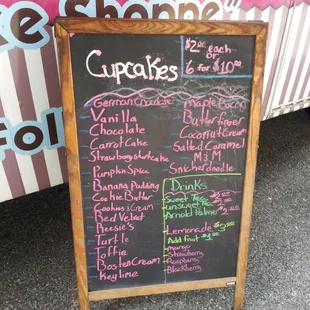 ke Shoppe
Fol
$2.00 each
or
6 for $10.00
Cupcakes
German Chocolate
Vanilla
Chocolate
Carrot Cake
Strawberry shortcake
Pumpkin Spice
Banana Pudding
Cookie Butter
Cookies & Cream
Red Velvet
Reese's
Turtle
Toffie
Boston Cream
Key lime
maple Bacon
Butterfinger
Coconut Cream
Salted Caramel
M&M
Snickerdoodle
Drinks
Sweet Tea
Sunsweet
Arnold Palmer
Lemonade
Add fruit
mango
Strawberry
Raspberry
Blackberry